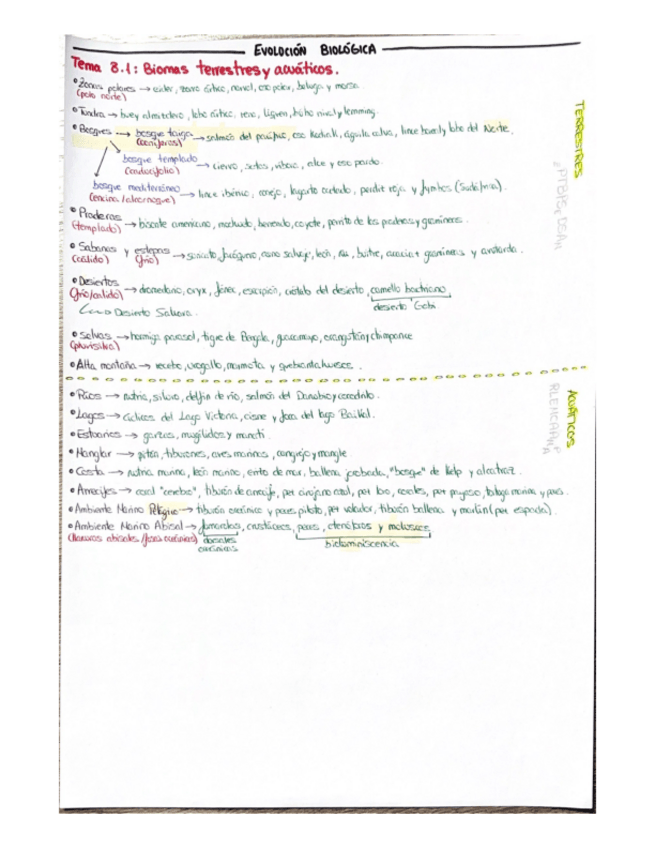 EVOLUCIÓN BIOLÓGICA
Tema 8.1: Biomas terrestres y acuáticos.
Zonas polares → eider, zorro ártico, narval, oso polar, beluga y morsa.
(polo norte)
Tundra → buey almizclero, lobo ártico, reno, liquen, búho nival y lemming.
Bosques → bosque taiga → salmón del pacífico, oso Kodiak, águila calva, lince boreal y lobo del Norte.
(coníferas)
bosque templado → ciervo, setas, víbora, alce y oso pardo.
(caducifolia)
bosque mediterráneo → lince ibérico, conejo, lagarto ocelado, perdiz roja y fynbos (Sudáfrica).
(encina/alcornoque)
Praderas → bisonte americano, berrendo, coyote, perrito de las praderas y gramíneas.
(templado)
Sabanas y estepas → león, ñu, buitre, acacia + gramíneas y avutarda.
(cálido) (frío)
Desiertos → dromedario, oryx, fénec, escorpión, crótalo del desierto, camello bactriano
(frío/cálido) desierto Gobi
Desierto Sahara.
Selvas → hormiga parasol, tigre de Bengala, guacamayo, orangután y chimpancé
(pluvisilva)
Alta montaña → rebeco, urogallo, marmota y quebrantahuesos.
TERRESTRES
Ríos → nutria, siluro, delfín de río, salmón del Danubio y cocodrilo.
Lagos → cíclidos del Lago Victoria, cisne y foca del lago Baikal.
Estuarios → garzas, mugílidos y manatí.
Manglar → pitón, tiburones, aves marinas, cangrejo y mangle
Costa → nutria marina, león marino, erizo de mar, ballena jorobada, "bosque" de Kelp y alcatraz.
Arrecifes → coral "cerebro", tiburón de arrecife, pez cirujano azul, pez loro, corales, pez payaso, tortuga marina y
Ambiente Marino Pelágico → tiburón oceánico y peces piloto, pez volador, tiburón ballena y marlín (pez espada).
Ambiente Marino Abisal → fumarolas, crustáceos, peces, ctenóforos y moluscos
(llanuras abisales/fosas oceánicas) dorsales oceánicas bioluminiscencia
ACUÁTICOS